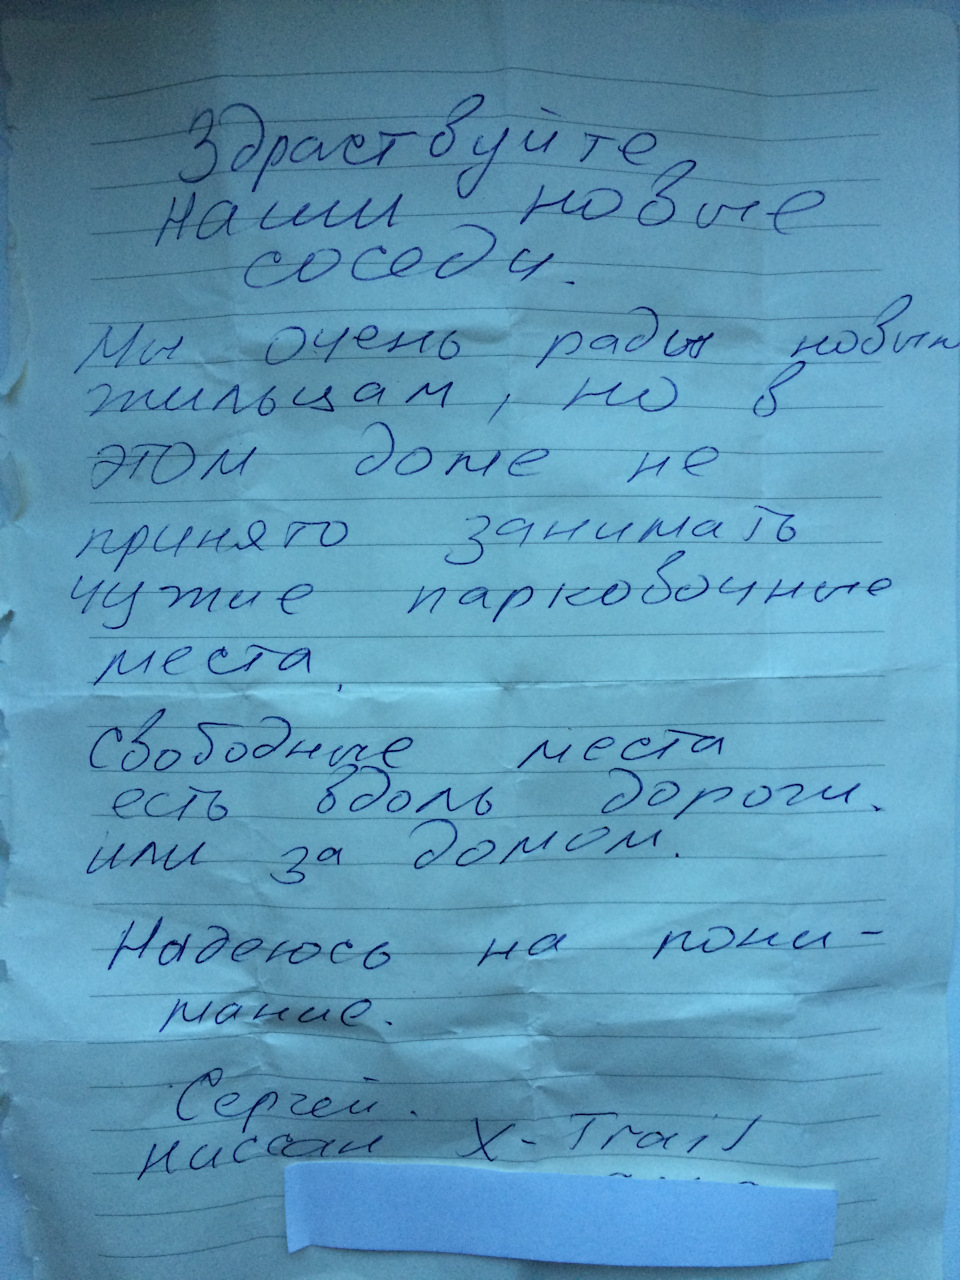 Здраствуйте
наши новые
соседи.
Мы очень рады новым
жильцам, но в
этом доме не
принято занимать
чужие парковочные
места.
Свободные места
есть вдоль дороги.
или за домом.
Надеюсь на пони-
мание.
Сергей.
Ниссан X-Trail